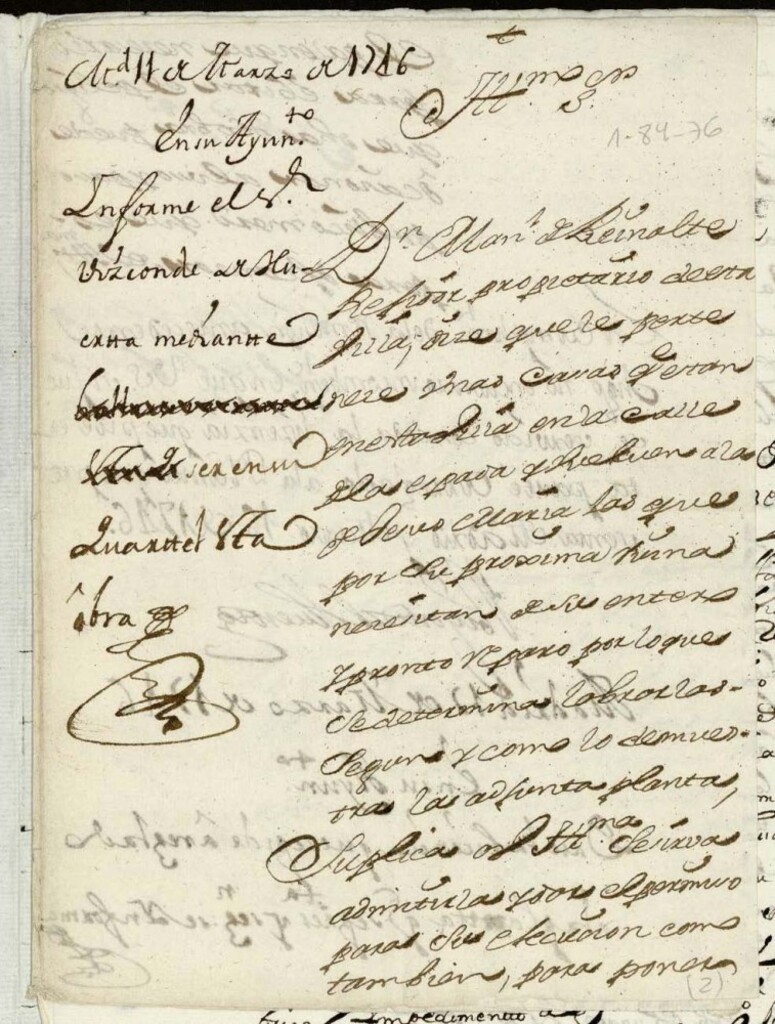 Md 11 de Marzo de 1746
En su Ayunto.
Informe el Sr.
Vizconde de Hu-
ertta mediantte
ser en su
Quarttel Esta
obra
Illmo Sor
1-84-76
Dn. Manl. de Reinalte
Residor propietario de esta
Villa, dize que le perte
neze unas casas q estan
en esta Villa en la calle
de la espada y buelben a la
de Jesus y Maria las que
por su proxima Ruina
nezesitan de su entero
y pronto Reparo por lo que
se determina labrarlas
segun y como lo demues-
tra la adjunta planta,
Suplica a V. Illma. se sirva
admitirla y dar el permiso
para su execuzion como
tambien, para poner
(2)
impedimento a